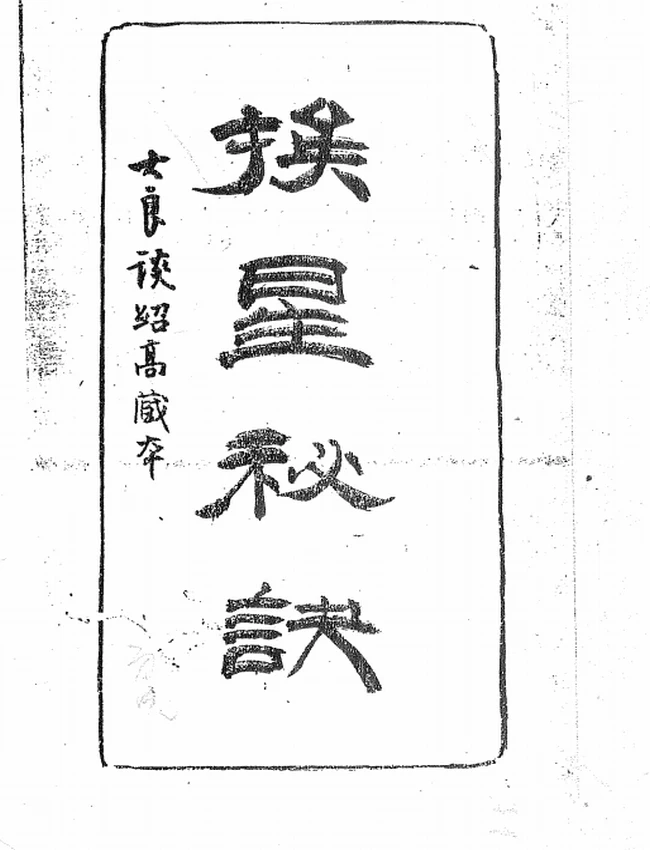 挨星秘訣
大良談紹高藏本